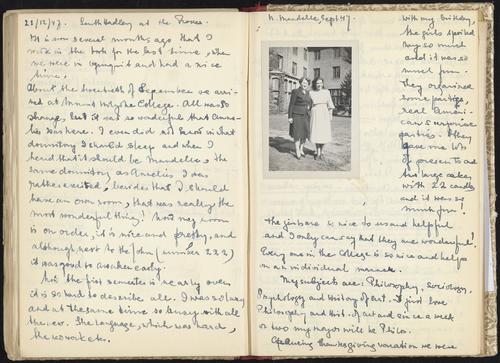 28/12/47. South Hadley at the
It is now several months ago that I
wrote in the book for the last time, when
we were in and had a nice
time.
About the twentieth of September we arri-
ved at Mount Holyoke College. All was so
strange, but it was so wonderful that Anne-
lies was here. I even did not know in what
dormitory I should sleep and when I
heard that it should be Mandelle, the
same dormitory as Annelies I was
rather excited, besides that I should
have an own room, that was really the
most wonderful thing! Now my room
is in order, it is nice and pretty, and
although next to the John (number 222)
it was good to awaken early.
Now the first semester is nearly over
it is so hard to describe all. I was so busy
and at the same time so lonely with all
the new. The language, which was hard,
the homework.
N. Mandelle, Sept 47.
with my birthday,
the girls spoiled
my so much
and it was so
much fun.
They organized
some parties,
real Ameri-
can surprise
parties. They
gave me lots
of presents and
two large cakes
with 22 candles
and it was so
much fun!
The girls are so nice to us and helpful
and I only can say that they are wonderful!
Every one in the College is so nice and helps
in an individual manner.
My subjects are: Philosophy, Sociology,
Psychology and History of art. I just love
Philosophy and Hist. of art and since a week
or two my major will be Philo.
During thanksgiving vacation we were